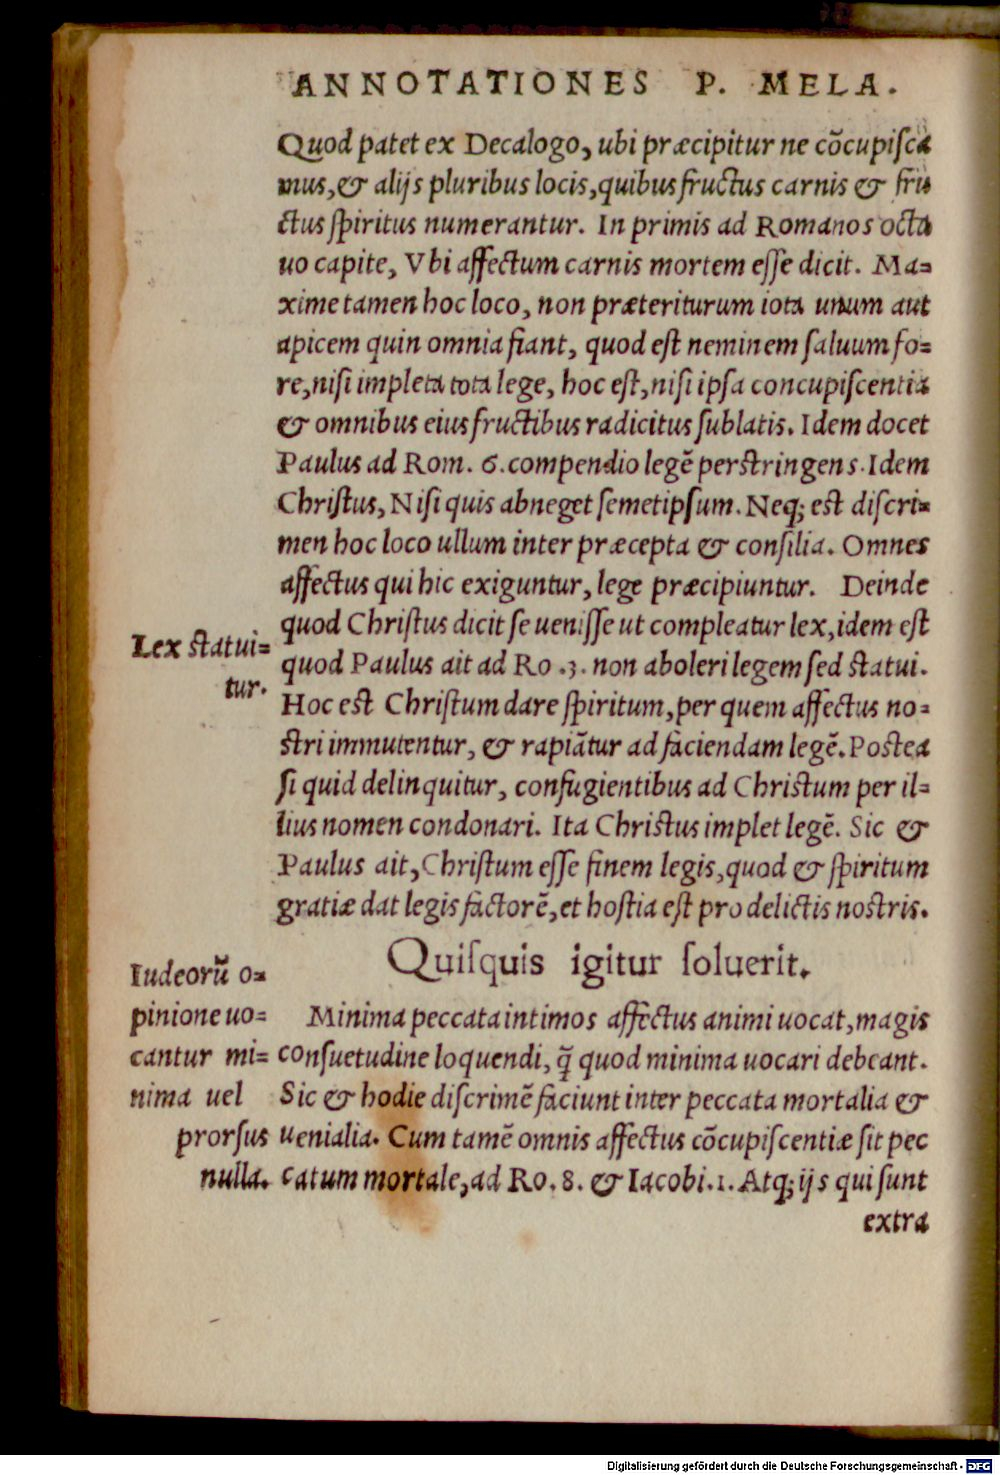 ANNOTATIONES P. MELA.
Quod patet ex Decalogo, ubi præcipitur ne cōcupiſca
mus,& alijs pluribus locis,quibus fructus carnis & fru
ctus ſpiritus numerantur. In primis ad Romanos octa
uo capite, Vbi affectum carnis mortem eſſe dicit. Ma=
xime tamen hoc loco, non præteriturum iota unum aut
apicem quin omnia fiant, quod eſt neminem ſaluum fo=
re,niſi impleta tota lege, hoc eſt,niſi ipſa concupiſcentia
& omnibus eius fructibus radicitus ſublatis. Idem docet
Paulus ad Rom. 6.compendio legē perſtringens.Idem
Chriſtus, Niſi quis abneget ſemetipſum. Neq; eſt diſcri=
men hoc loco ullum inter præcepta & conſilia. Omnes
affectus qui hic exiguntur, lege præcipiuntur. Deinde
quod Chriſtus dicit ſe ueniſſe ut compleatur lex,idem eſt
Lex ſtatui=
tur.
quod Paulus ait ad Ro .3. non aboleri legem ſed ſtatui.
Hoc eſt Chriſtum dare ſpiritum,per quem affectus no=
ſtri immutentur, & rapiātur ad faciendam legē.Poſtea
ſi quid delinquitur, confugientibus ad Chriſtum per il=
lius nomen condonari. Ita Chriſtus implet legē. Sic &
Paulus ait,Chriſtum eſſe finem legis,quod & ſpiritum
gratiæ dat legis factorē,et hoſtia eſt pro delictis noſtris.
Quiſquis igitur ſoluerit.
Iudeorū o=
pinione uo=
cantur mi=
nima uel
prorſus
nulla.
Minima peccata intimos affectus animi uocat,magis
conſuetudine loquendi, q̄ quod minima uocari debeant.
Sic & hodie diſcrimē faciunt inter peccata mortalia &
uenialia. Cum tamē omnis affectus cōcupiſcentiæ ſit pec
catum mortale,ad Ro. 8. & Iacobi.1. Atq; ijs qui ſunt
extra
Digitalisierung gefördert durch die Deutsche Forschungsgemeinschaft - DFG